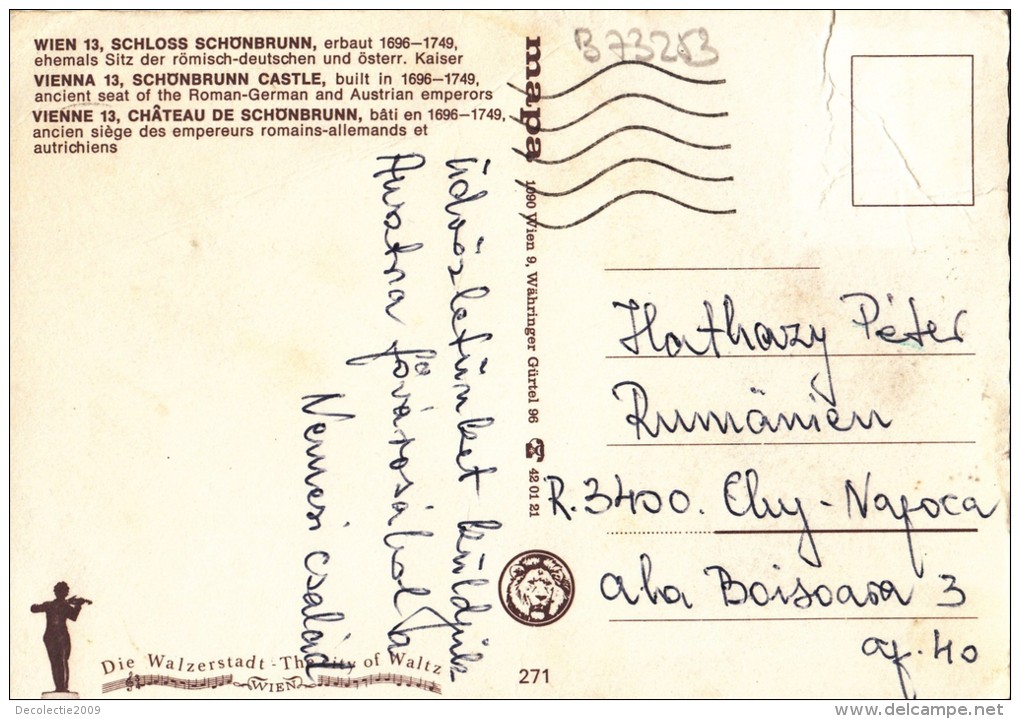 WIEN 13, SCHLOSS SCHÖNBRUNN, erbaut 1696–1749,
ehemals Sitz der römisch-deutschen und österr. Kaiser
VIENNA 13, SCHÖNBRUNN CASTLE, built in 1696–1749,
ancient seat of the Roman-German and Austrian emperors
VIENNE 13, CHÂTEAU DE SCHÖNBRUNN, bâti en 1696–1749,
ancien siège des empereurs romains-allemands et
autrichiens
B73253
mapa 1090 Wien 9, Währinger Gürtel 96 42 01 21
Üdvözletünket küldjük
Austria fővárosából
Nemesi család
Hathazy Péter
Rumänien
R. 3400. Cluj-Napoca
ala Boisoara 3
ap. 40
Die Walzerstadt - The City of Waltz
WIEN
271
Decolectie2009
delcampe.net